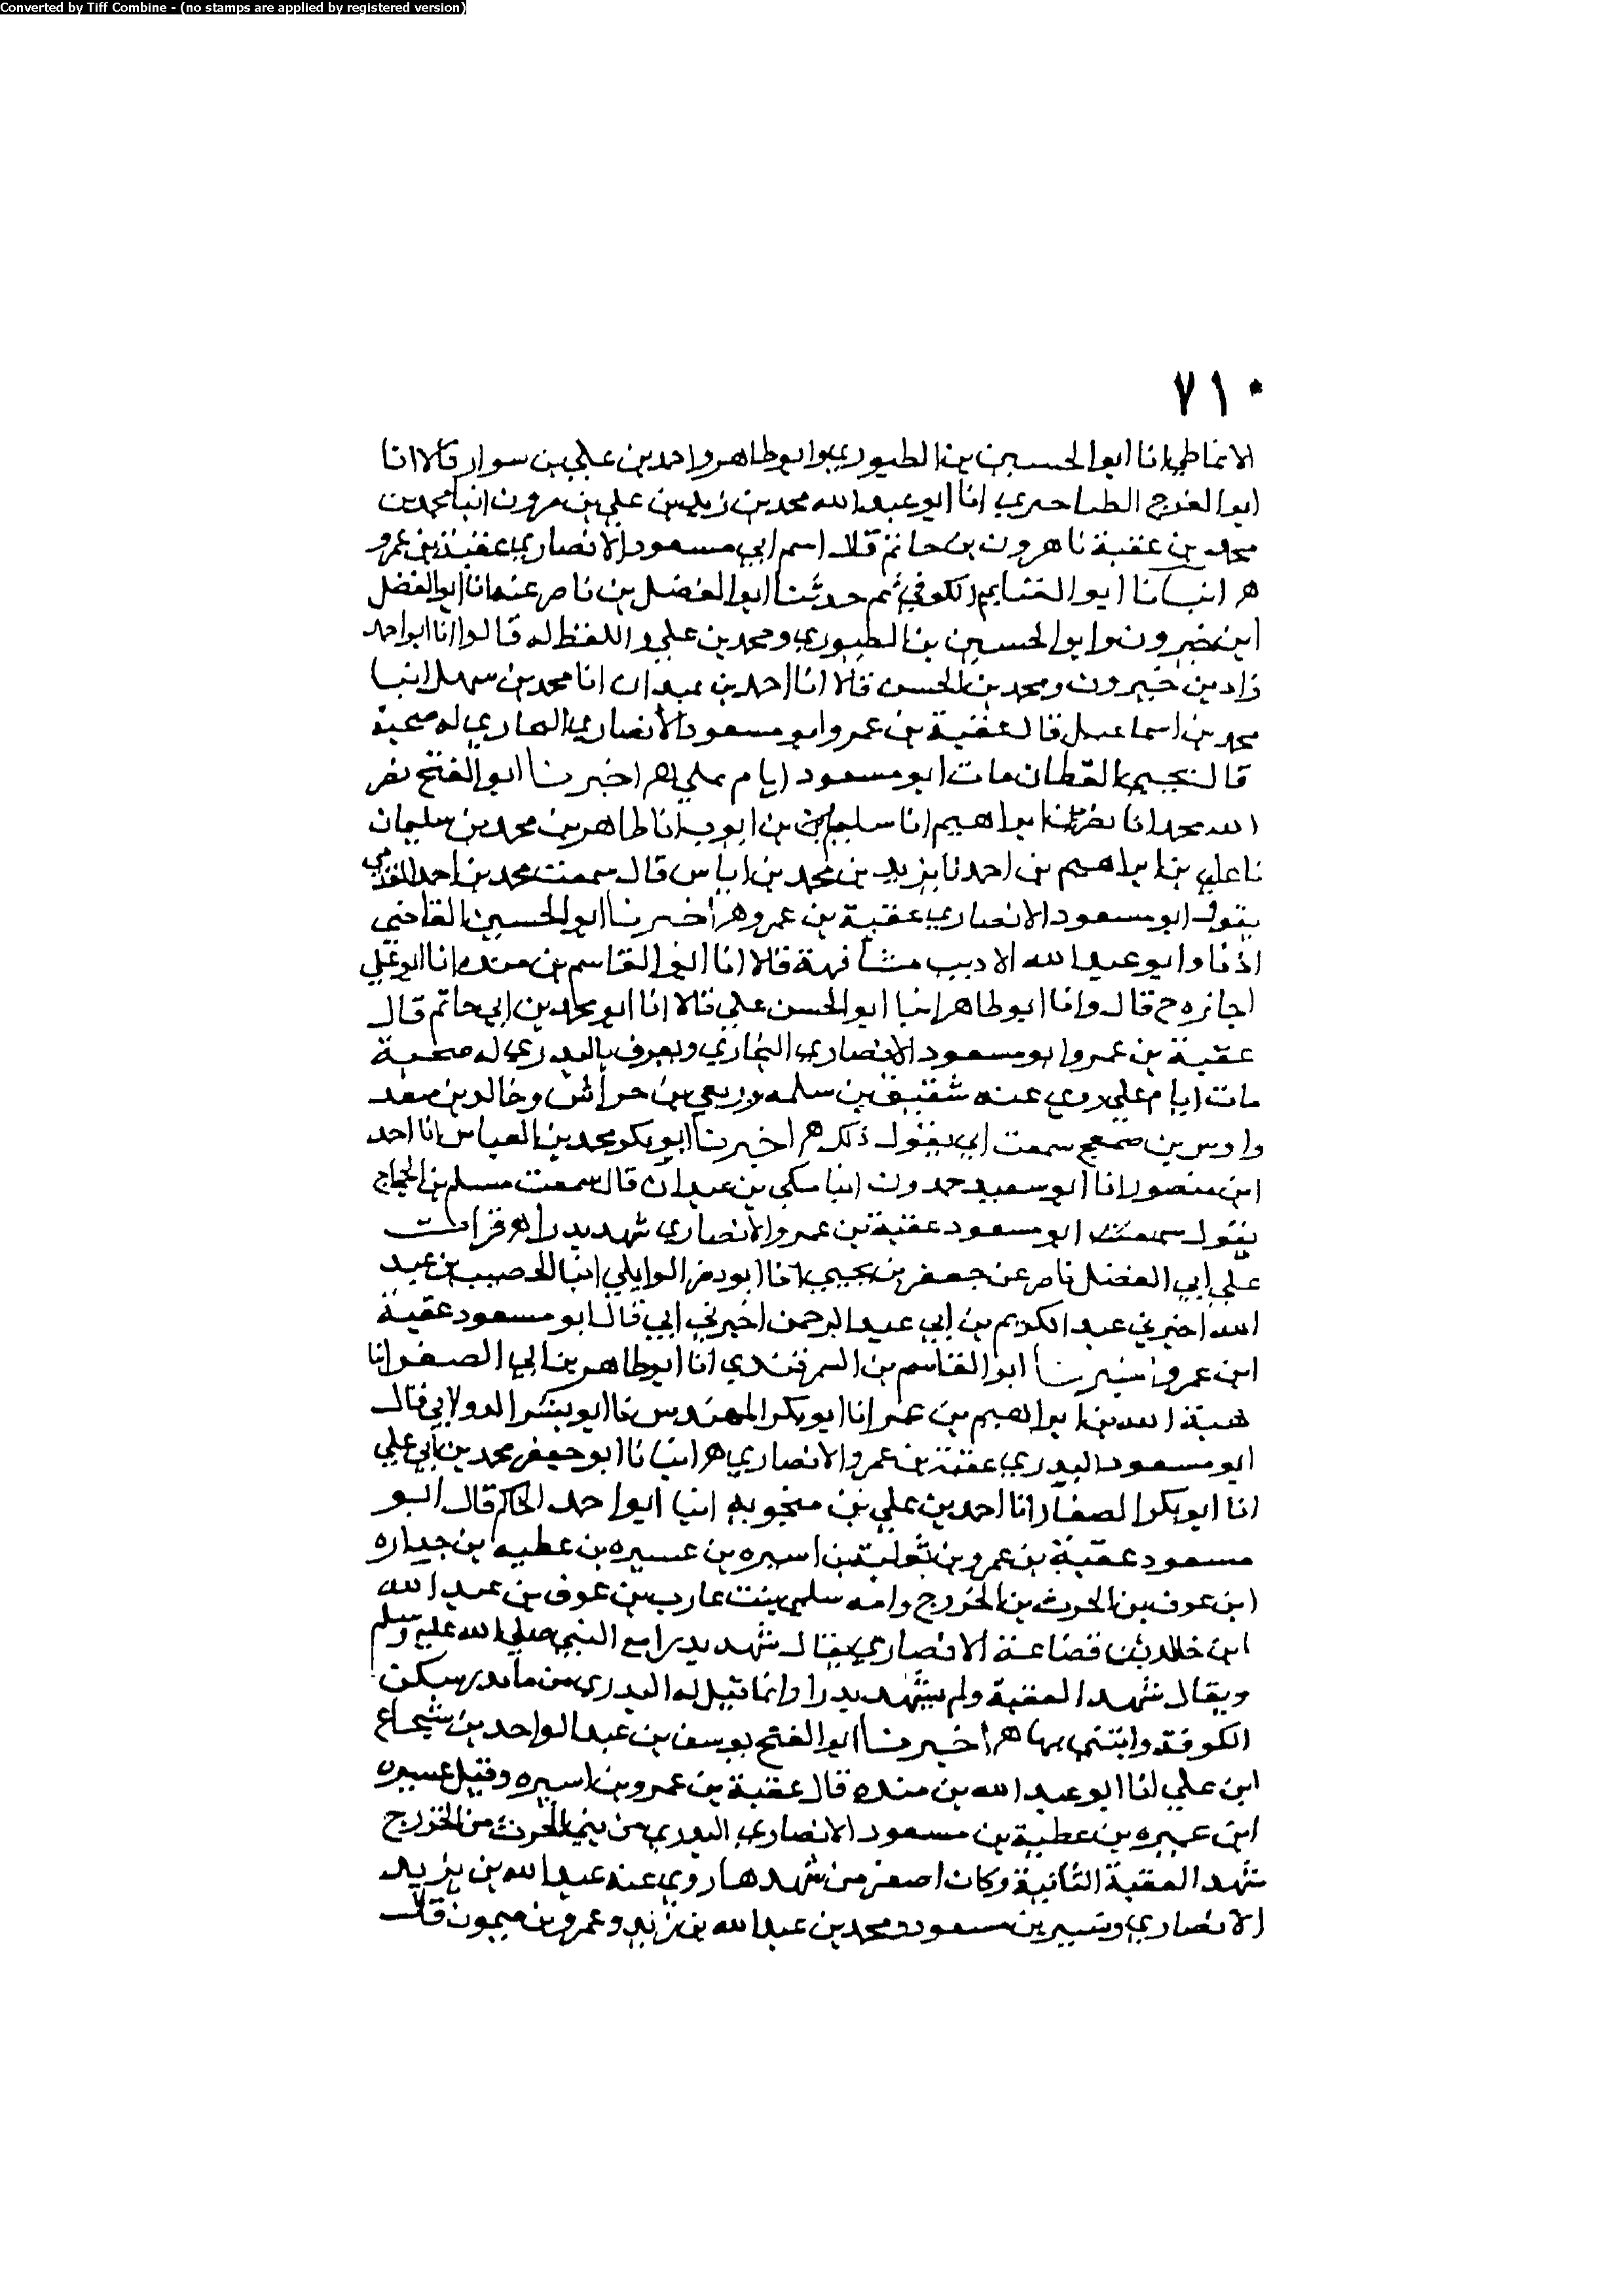 Converted by Tiff Combine - (no stamps are applied by registered version)
٧١٠
الانماطي انا ابوالحسين بن الطيوري وابوطاهر واحمدبن علي بن سوار قالا انا
ابوالفرج الطناجيري انا ابوعبدالله محمدبن زيدبن علي بن مرون انبا محمدبن
محمد بن عقبة نا هرون بن حاتم قال اسم ابي مسعود الانصاري عقبة بن عمرو
هـ انبانا ابوالغنايم الكوفي ثم حدثنا ابوالفضل بن ناصر عنه انا ابوالفضل
ابن خيرون وابوالحسين بن الطيوري ومحمدبن علي واللفظ له قالوا انا ابواحمد
زاد بن خيرون ومحمد بن الحسن قالا انا احمدبن عبدان انا محمدبن سهل انبا
محمد بن اسماعيل قال عقبة بن عمرو ابو مسعود الانصاري له صحبة
قال يحيى القطان مات ابو مسعود ايام علي هـ اخبرنا ابوالفتح نصر
الله محمد انا نصر بن ابراهيم انا سليم بن ايوب انا طاهر بن محمد بن سليمان
نا علي بن ابراهيم بن احمد نا يزيد بن محمد بن اياس قال سمعت محمد بن احمد المقدمي
يقول ابو مسعود الانصاري عقبة بن عمرو هـ اخبرنا ابوالحسين القاضي
اذنا وابو عبدالله الاديب مشافهة قالا انا ابوالقاسم بن منده انا ابوعلي
اجازه ح قال وانا ابوطاهر انبا ابوالحسن علي قالا انا ابو محمد بن ابي حاتم قال
عقبة بن عمرو ابو مسعود الانصاري النجاري ويعرف بالبدري له صحبة
مات ايام علي روي عنه شقيق بن سلمه وربعي بن حراش وخالد بن سعد
واوس بن ضمعج سمعت ابي يقول ذلك هـ اخبرنا ابوبكر محمد بن العباس انا احمد
ابن منصور انا ابو سعيد حمدون انبا مكي بن عبدان قال سمعت مسلم بن الحجاج
يقول ابو مسعود عقبة بن عمرو الانصاري شهد بدرا هـ قرات
علي ابي الفضل ناصر عن جعفر بن يحيى انا ابو نصر الوايلي انبا الخصيب بن عبد
الله اخبرني عبد الكريم بن ابي عبدالرحمن اخبرني ابي قال ابو مسعود عقبة
ابن عمرو اخبرنا ابوالقاسم بن السمرقندي انا ابوطاهر بن ابي الصقر انا
هبة الله بن ابراهيم بن عمر انا ابو بكر المهندس نا ابو بشر الدولابي قال
ابو مسعود البدري عقبة بن عمرو الانصاري هـ انبانا ابو جعفر محمد بن ابي علي
انا ابوبكر الصفار انا احمد بن علي بن منجويه انبا ابواحمد الحاكم قال ابو
مسعود عقبة بن عمرو بن ثعلبة بن اسيره بن عسيره بن عطيه بن جداره
ابن عوف بن الحرث بن الخزرج وامه سلمى بنت عازب بن عوف بن عبد الله
ابن خالد بن قضاعة الانصاري يقال شهد بدرا مع النبي صلى الله عليه وسلم
ويقال شهد العقبة ولم يشهد بدرا وانما قيل له البدري من ماء بدر سكن
الكوفة وابتنى بها هـ اخبرنا ابوالفتح يوسف بن عبدالواحد بن شجاع
ابن علي انا ابو عبد الله بن منده قال عقبة بن عمرو بن اسيره وقيل عسيره
ابن عسيره بن عطية بن مسعود الانصاري البدري من بني الحرث من الخزرج
شهد العقبة الثانية وكان اصغر من شهدها روي عنه عبدالله بن يزيد
الانصاري وبشير بن مسعود ومحمد بن عبدالله بن زيد وعمرو بن ميمون قال